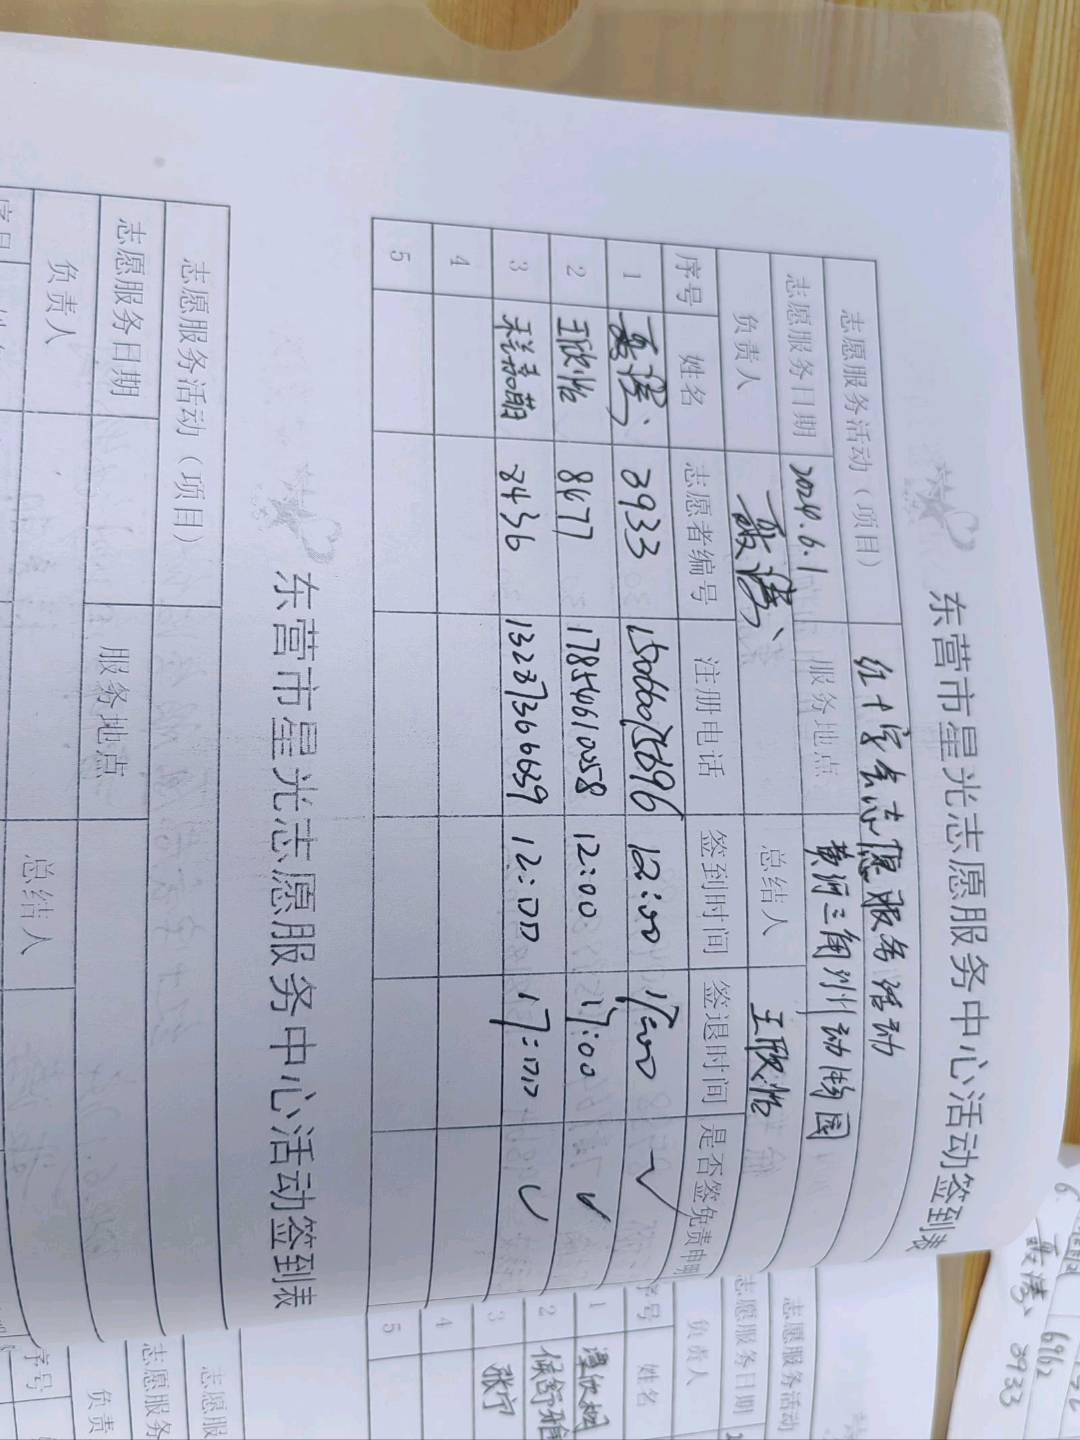 东营市星光志愿服务中心活动签到表
志愿服务活动（项目） 红十字会志愿服务活动
志愿服务日期 2024.6.1 服务地点 黄河三角洲动物园
负责人 总结人 王欣怡
序号 姓名 志愿者编号 注册电话 签到时间 签退时间 是否签免责申明
1 3933 12:00 17:00 ✓
2 王欣怡 8677 17854610058 12:00 17:00 ✓
3 8436 13287366639 12:00 17:00 ✓
4
5
东营市星光志愿服务中心活动签到表
志愿服务活动（项目）
志愿服务日期 服务地点
负责人 总结人
序号
志愿服务活动
志愿服务日期
负责人
序号 姓名
1
2
3 张宁
4
5
志愿服
志愿服务
负责
序号
6962
3933